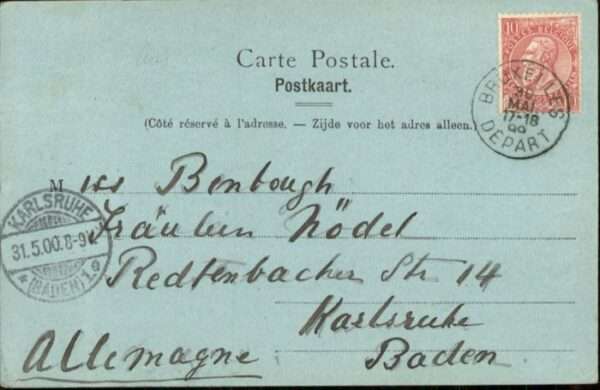 Carte Postale.
Postkaart.
(Côté réservé à l'adresse. – Zijde voor het adres alleen.)
10
BRUXELLES
MAI
17-18
DÉPART
Miss Benbough
KARLSRUHE
31.5.00.8-9V.
(BADEN)
Fräulein Nödel
Redtenbacher Str 14
Karlsruhe
Baden
Allemagne